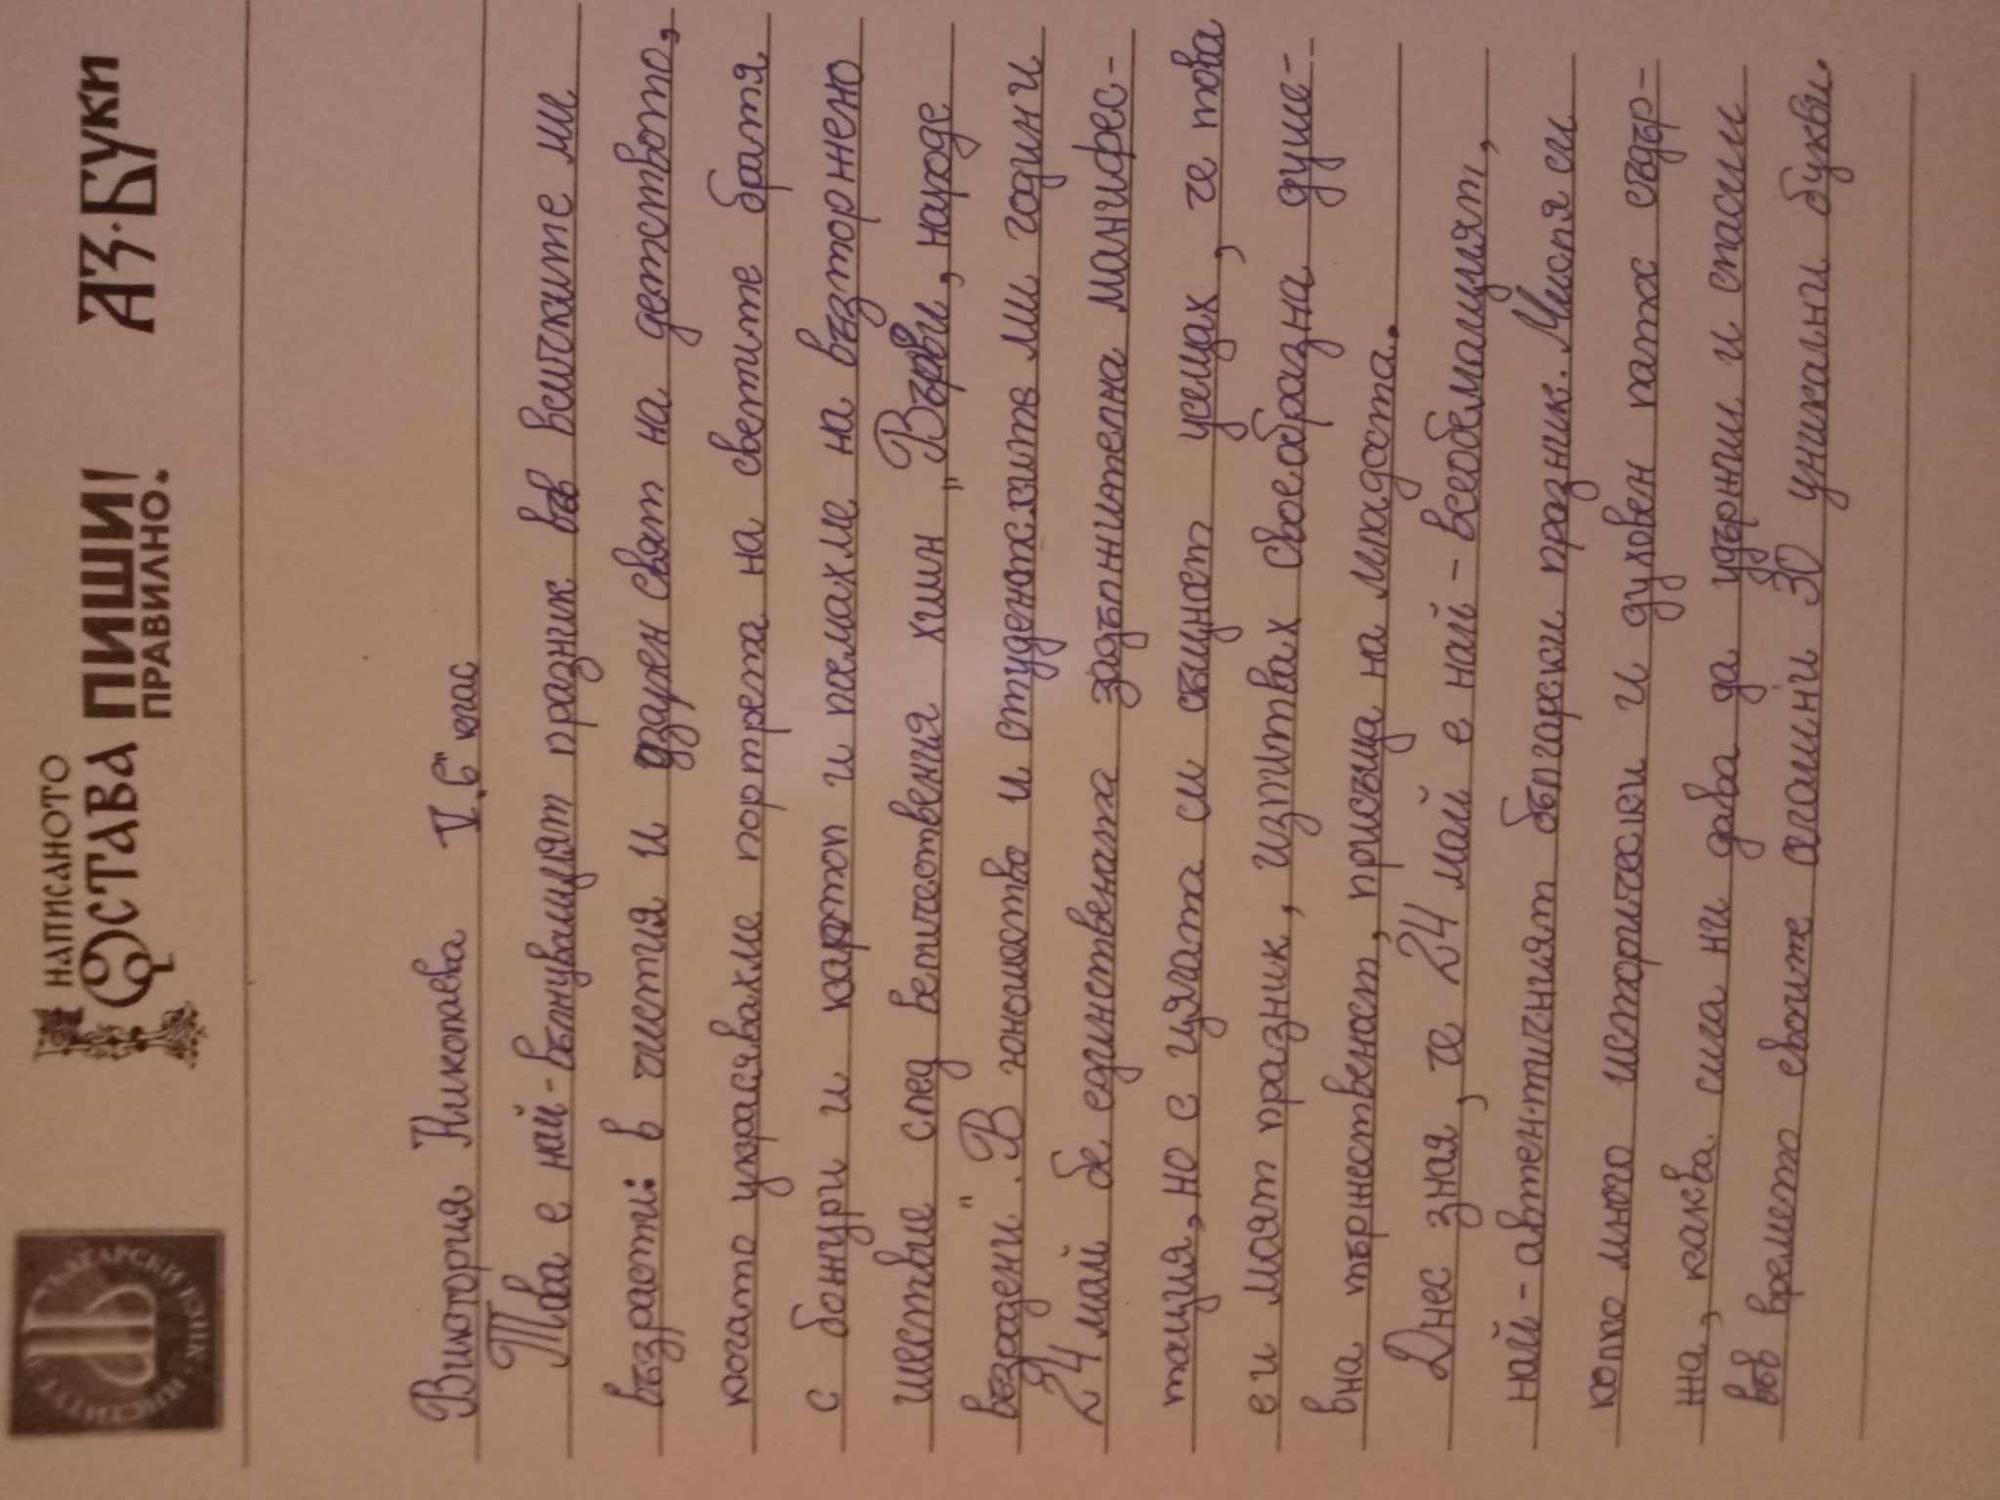 ИНСТИТУТ ЗА БЪЛГАРСКИ ЕЗИК
НАПИСАНОТО
ОСТАВА ПИШИ!
ПРАВИЛНО.
АЗ·БУКИ
Виктория Николаева V „б“ клас
Това е най-вълнуващият празник във всичките ми
възрасти: в чистия и дззвучен свят на детството,
когато украсявахме портрета на светите братя
с божури и картоп и поемахме на възторжено
шествие след величествения химн „Върви, народе
възродени“. В юношеството и студентските ми години
24 май бе единствената задължителна манифес-
тация, но с цялата си същност усещах, че това
е и моят празник, изпитвах своеобразна душе-
вна тържественост, присъща на младостта.
Днес зная, че 24 май е най-всеобемащият,
най-автентичният български празник. Мисля си
колко много исторически и духовен патос съдър-
жа, каква сила ни дава да удържим и спасим
във времето своите сламини 30 уникални букви.